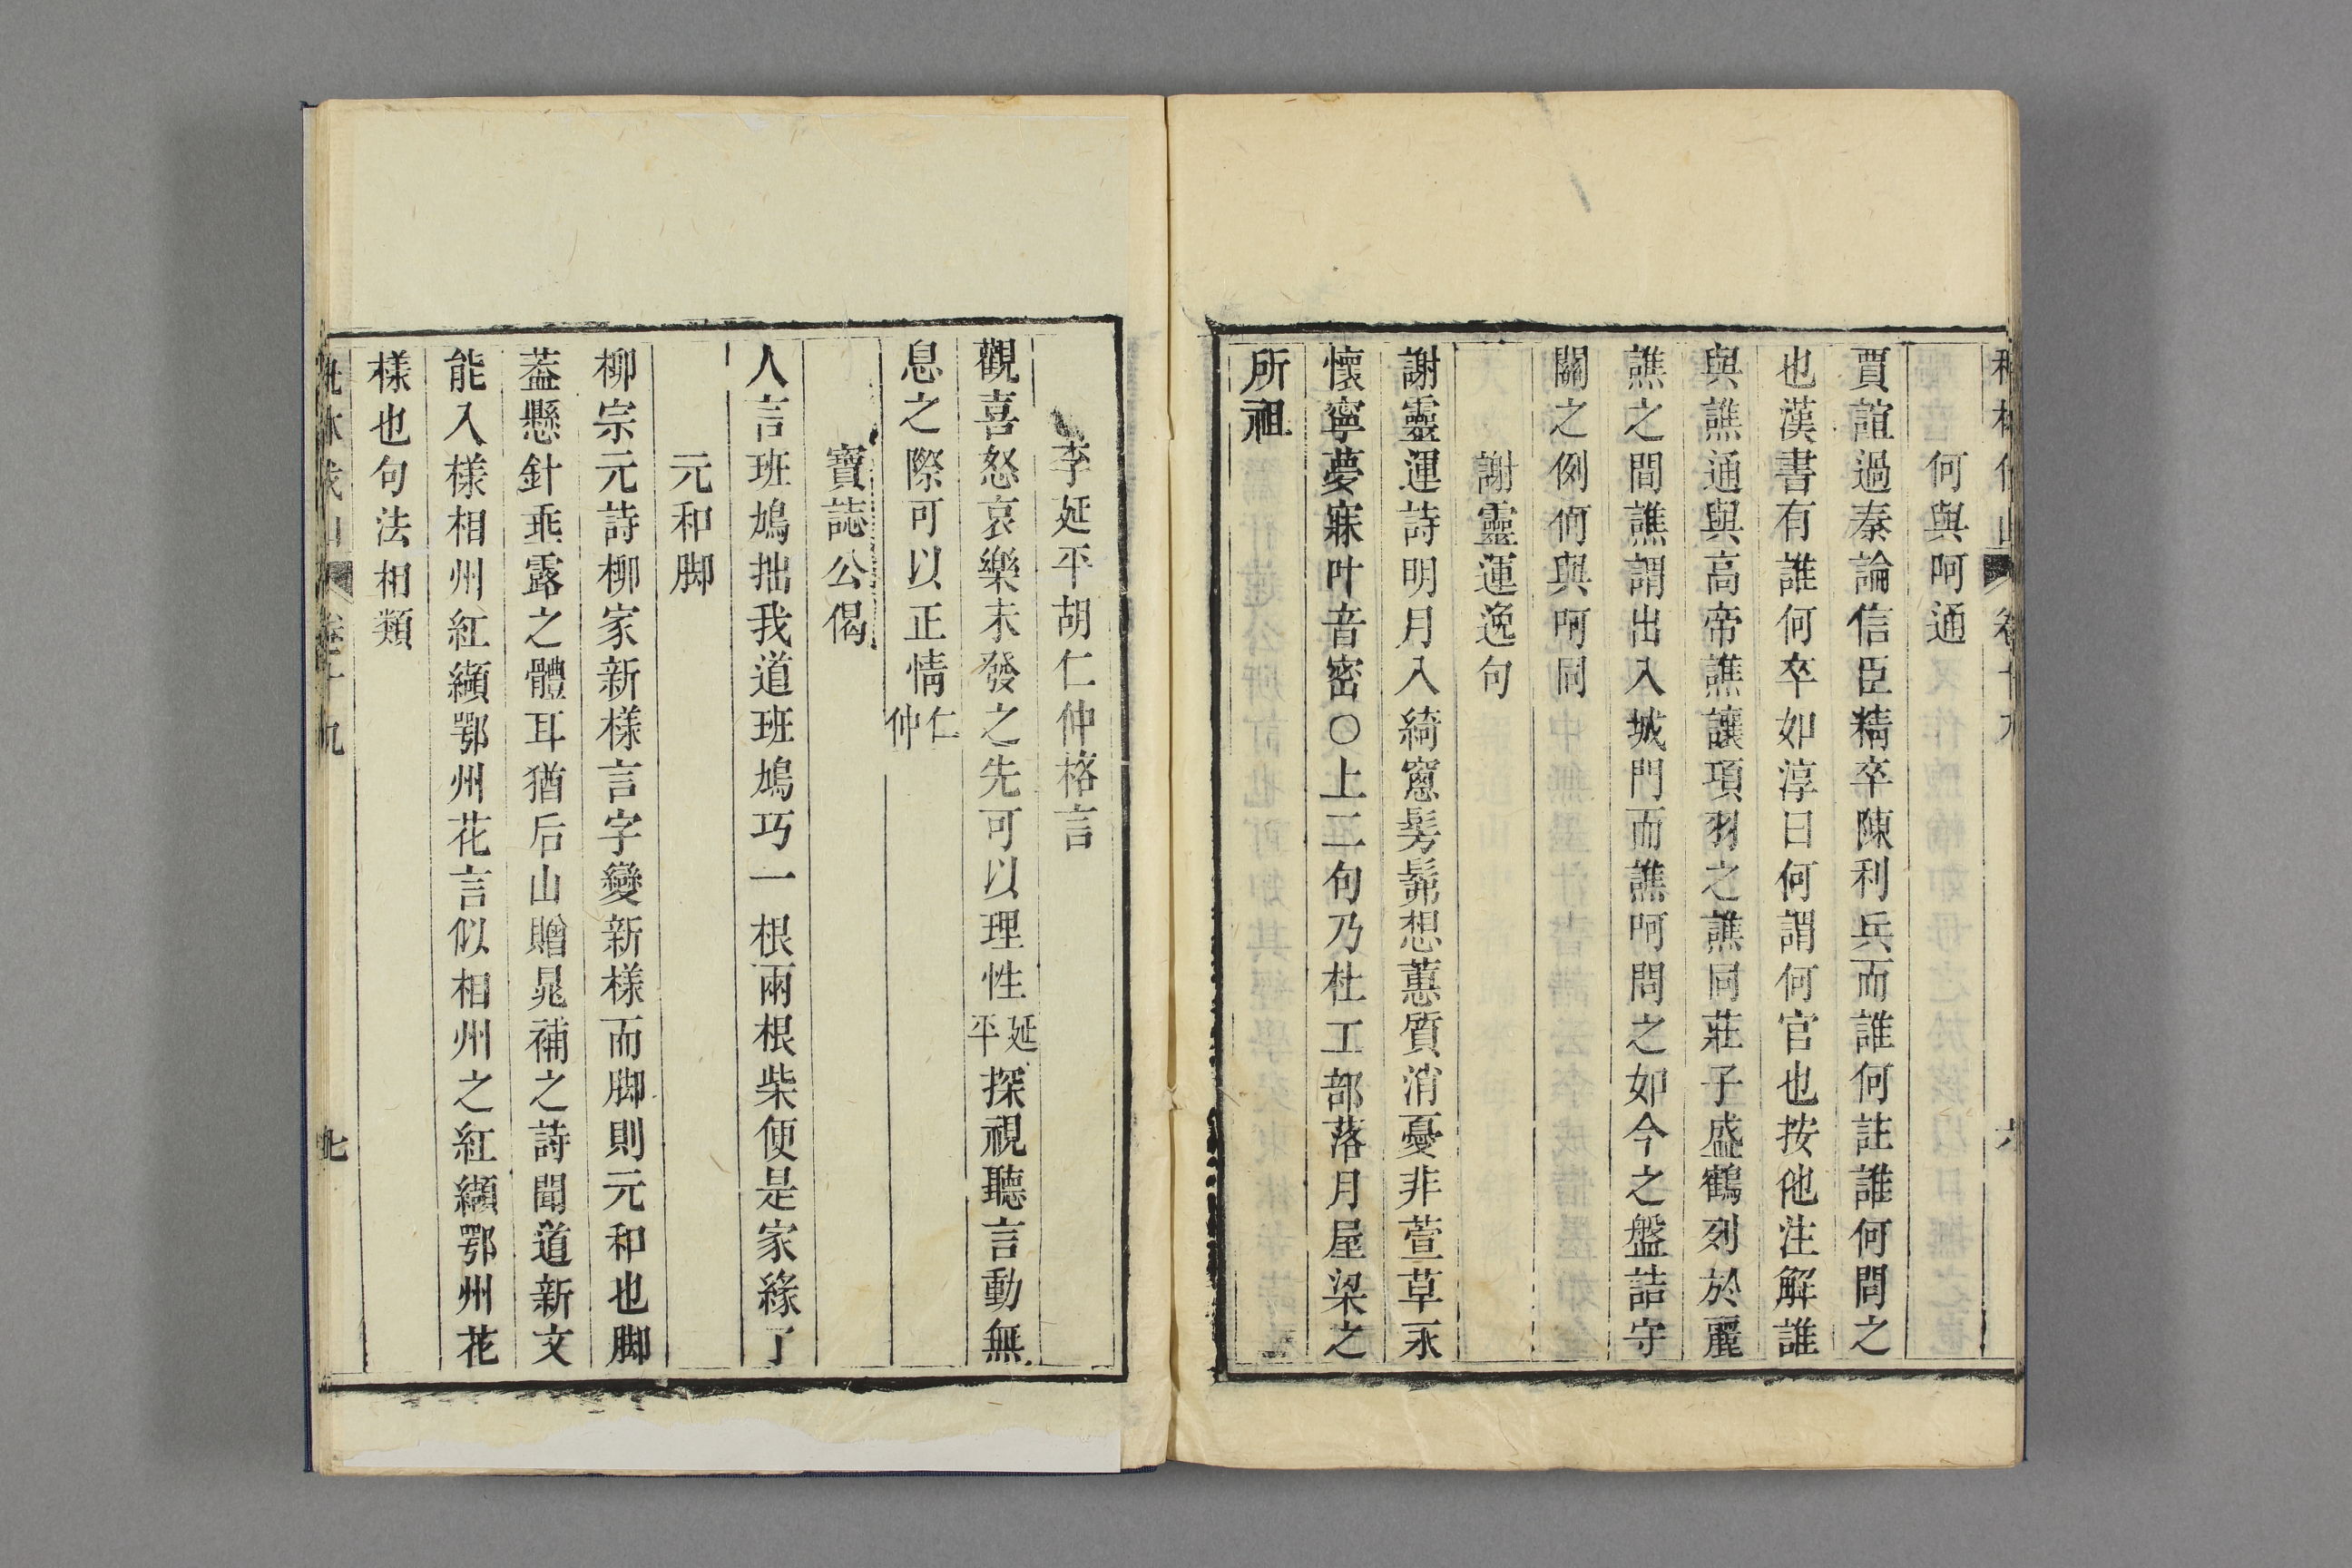 何與呵通
賈誼過秦論信臣精卒陳利兵而誰何註誰何問之
也漢書有誰何卒如淳曰何謂何官也按他注解誰
與譙通與高帝譙讓項羽之譙同莊子盛鶴列於麗
譙之間譙謂出入城門而譙呵問之如今之盤詰守
關之例何與呵同
謝靈運逸句
謝靈運詩明月入綺窻髣髴想蕙質消憂非萱草永
懷寧夢寐叶音密○上二句乃杜工部落月屋梁之
所祖
李延平胡仁仲格言
觀喜怒哀樂未發之先可以理性延平探視聽言動無
息之際可以正情仁仲
寶誌公偈
人言班鳩拙我道班鳩巧一根兩根柴便是家緣了
元和脚
柳宗元詩柳家新樣言字變新樣而脚則元和也脚
葢懸針垂露之體耳猶后山贈晁補之詩聞道新文
能入樣相州紅纈鄂州花言似相州之紅纈鄂州花
樣也句法相類
七